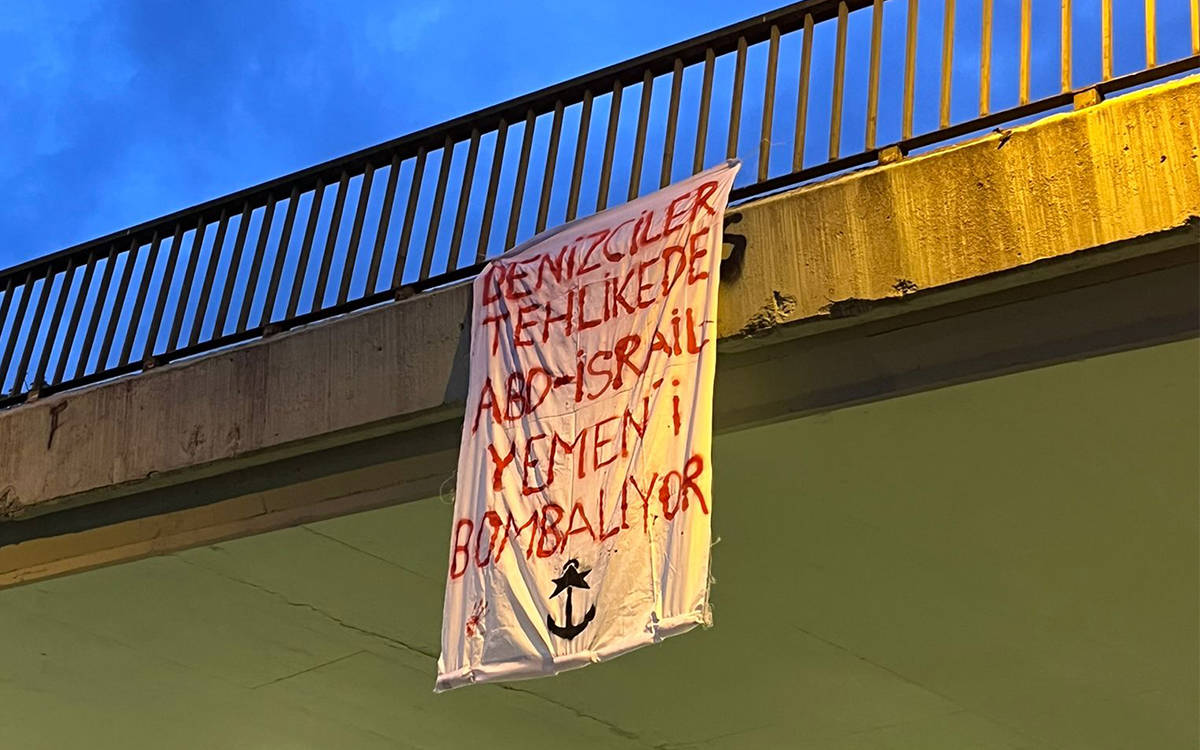 DENİZCİLER
TEHLİKEDE
ABD-İSRAİL
YEMEN'İ
BOMBALIYOR